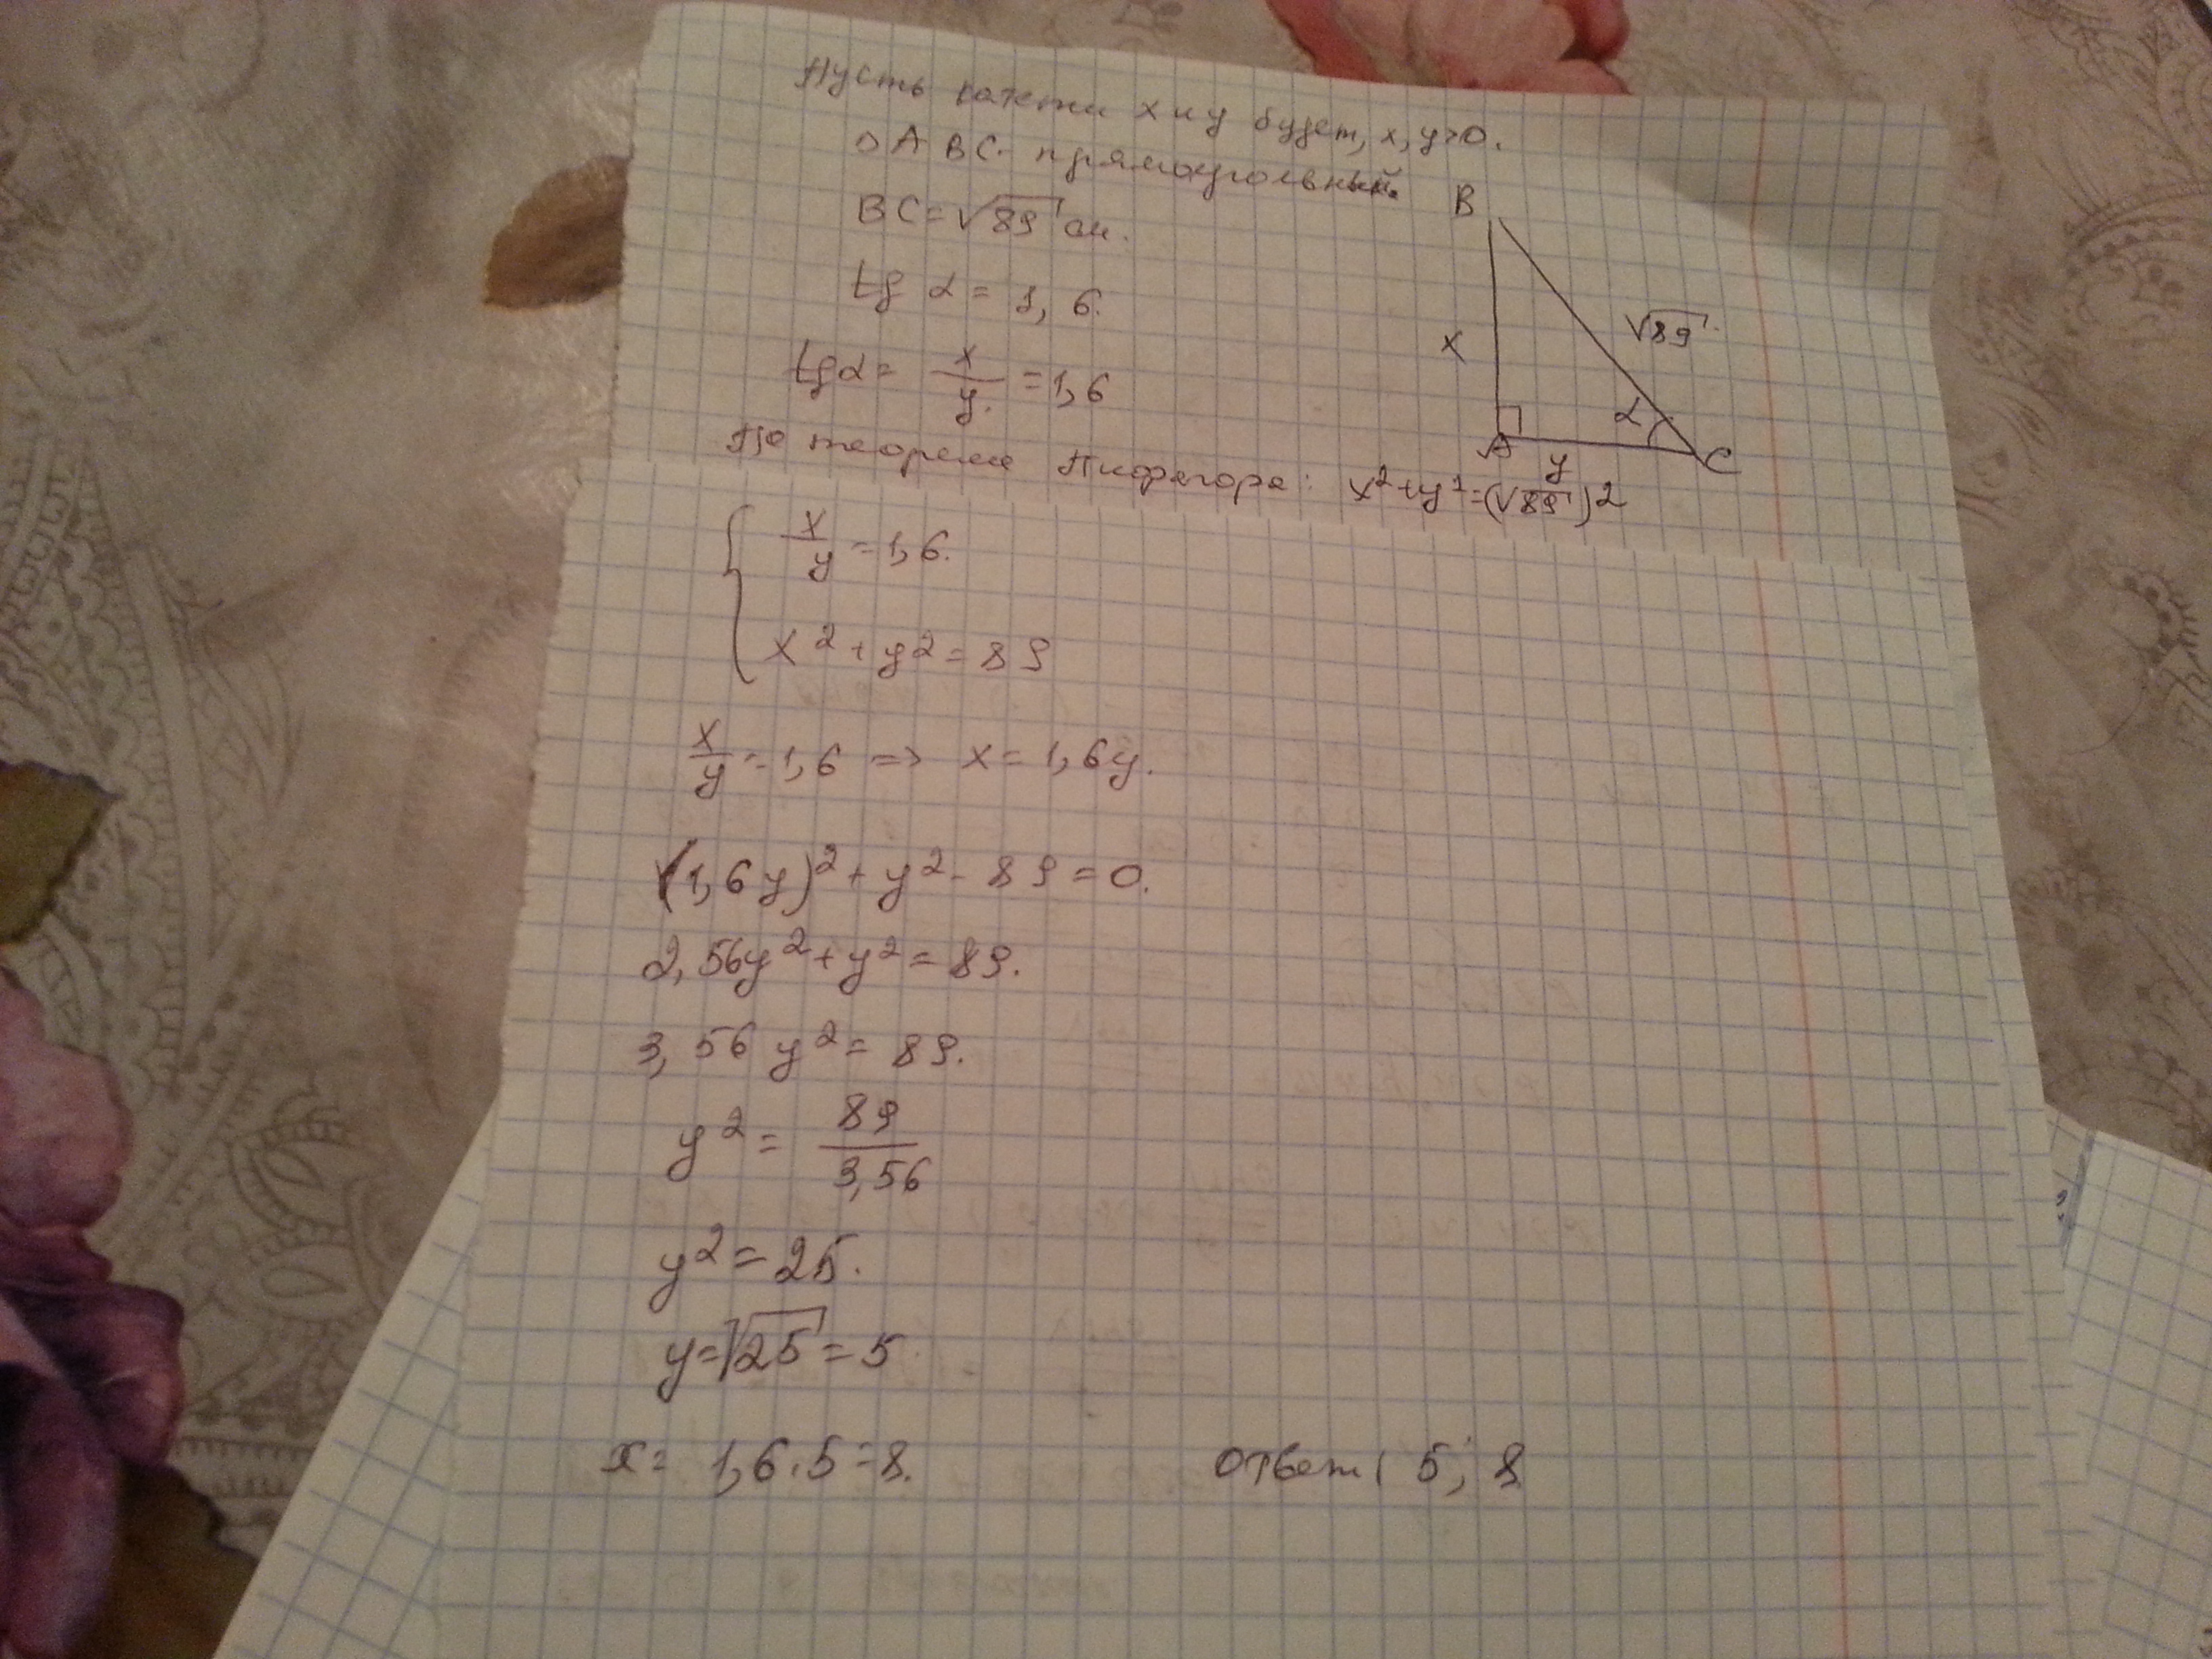 Пусть катеты x и y будет, x, y>0.
△ABC- прямоугольный.
BC=√89 см.
tg α = 1,6.
tgα = x/y. =1,6
По теореме Пифагора: x²+y²=(√89)2
{ x/y = 1,6.
x²+y²=89
x/y = 1,6 => x=1,6y.
(1,6y)²+y²-89=0.
2,56y²+y²=89.
3,56y²=89.
y²= 89/3,56
y²=25.
y=√25=5
x= 1,6.5=8.
Ответ: 5; 8
B
x
√89
α
A
y
C